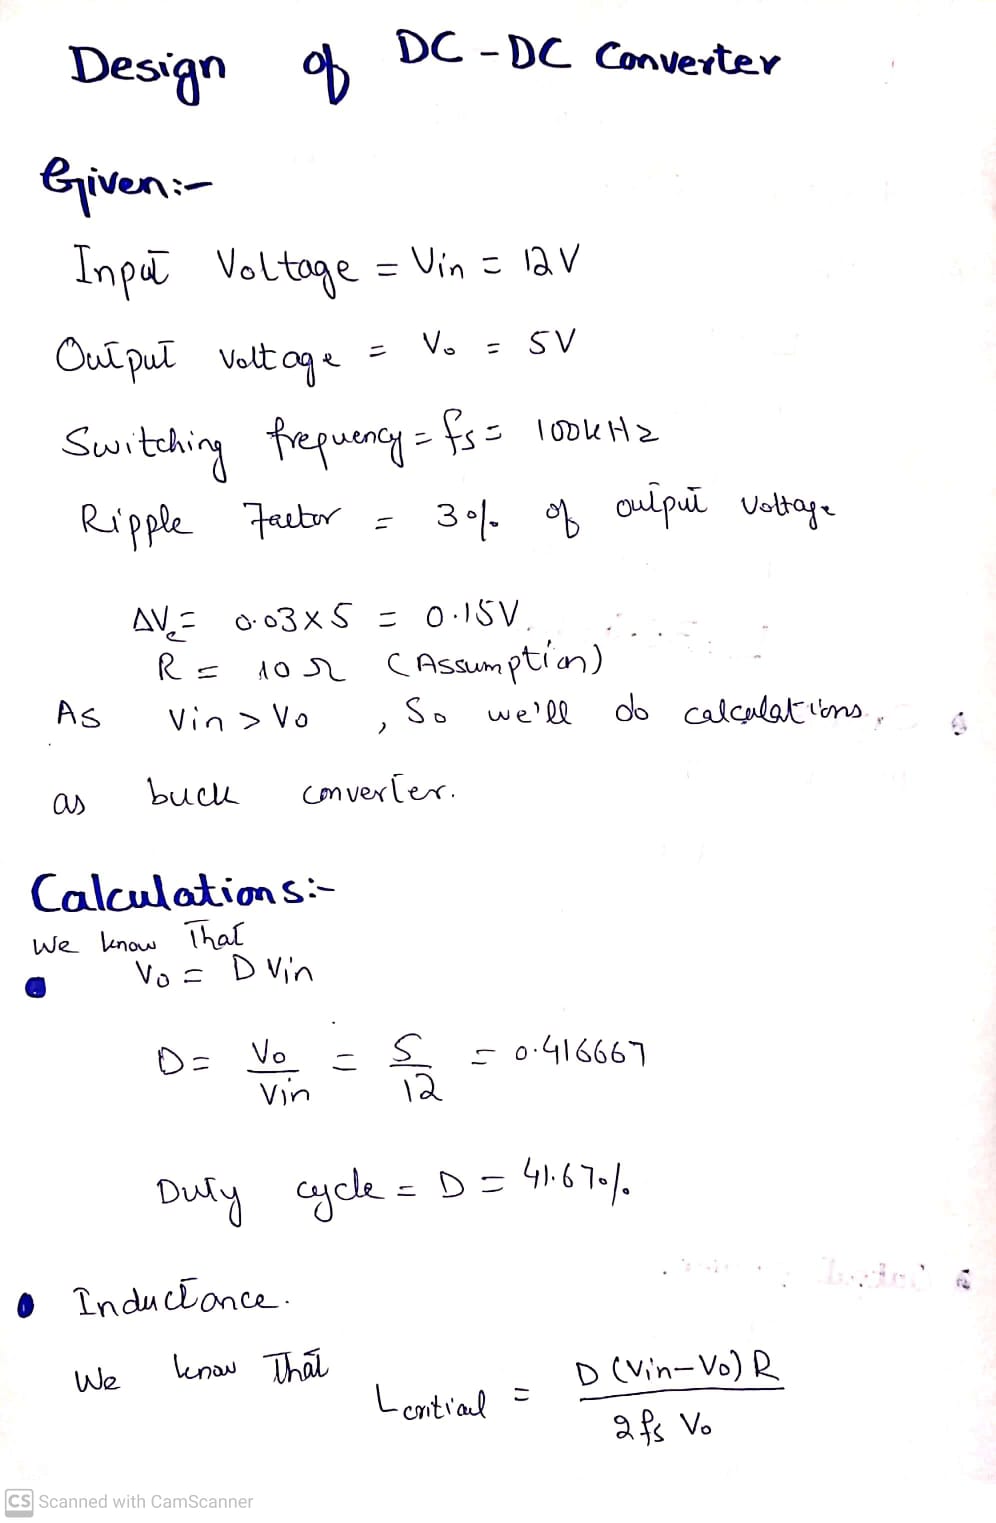 Design of DC-DC Converter
Given:-
Input Voltage = Vin = 12V
Output Voltage = Vo = 5V
Switching frequency = fs = 100kHz
Ripple Factor = 3% of output voltage
ΔVc = 0.03x5 = 0.15V
R = 10Ω (Assumption)
As Vin > Vo , So we'll do calculations
as buck converter.
Calculations:-
We know That
Vo = D Vin
D = Vo/Vin = 5/12 = 0.416667
Duty cycle = D = 41.67%
Inductance.
We know That
Lcritical = D (Vin-Vo) R / 2 fs Vo
CS Scanned with CamScanner